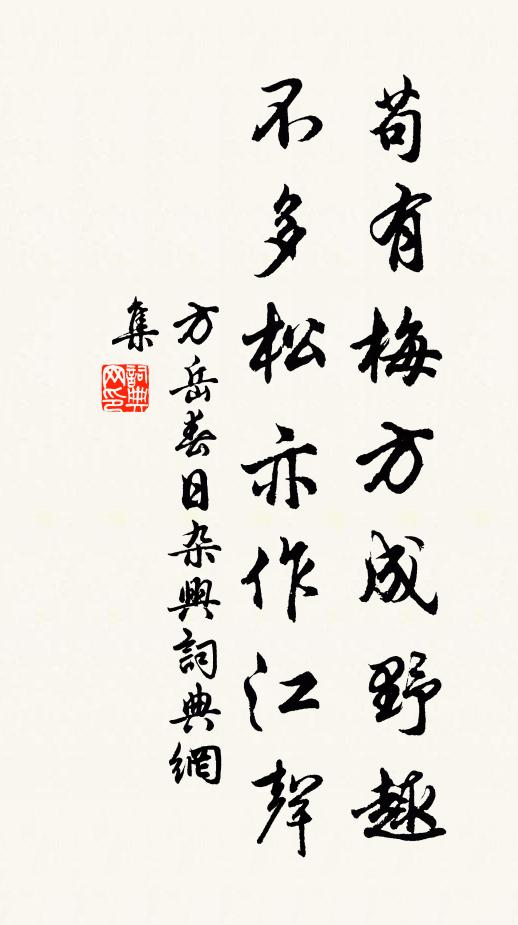 苟有梅方成野趣
不多松亦作江聲
方岳春日杂興詞典網
集
詞典网印